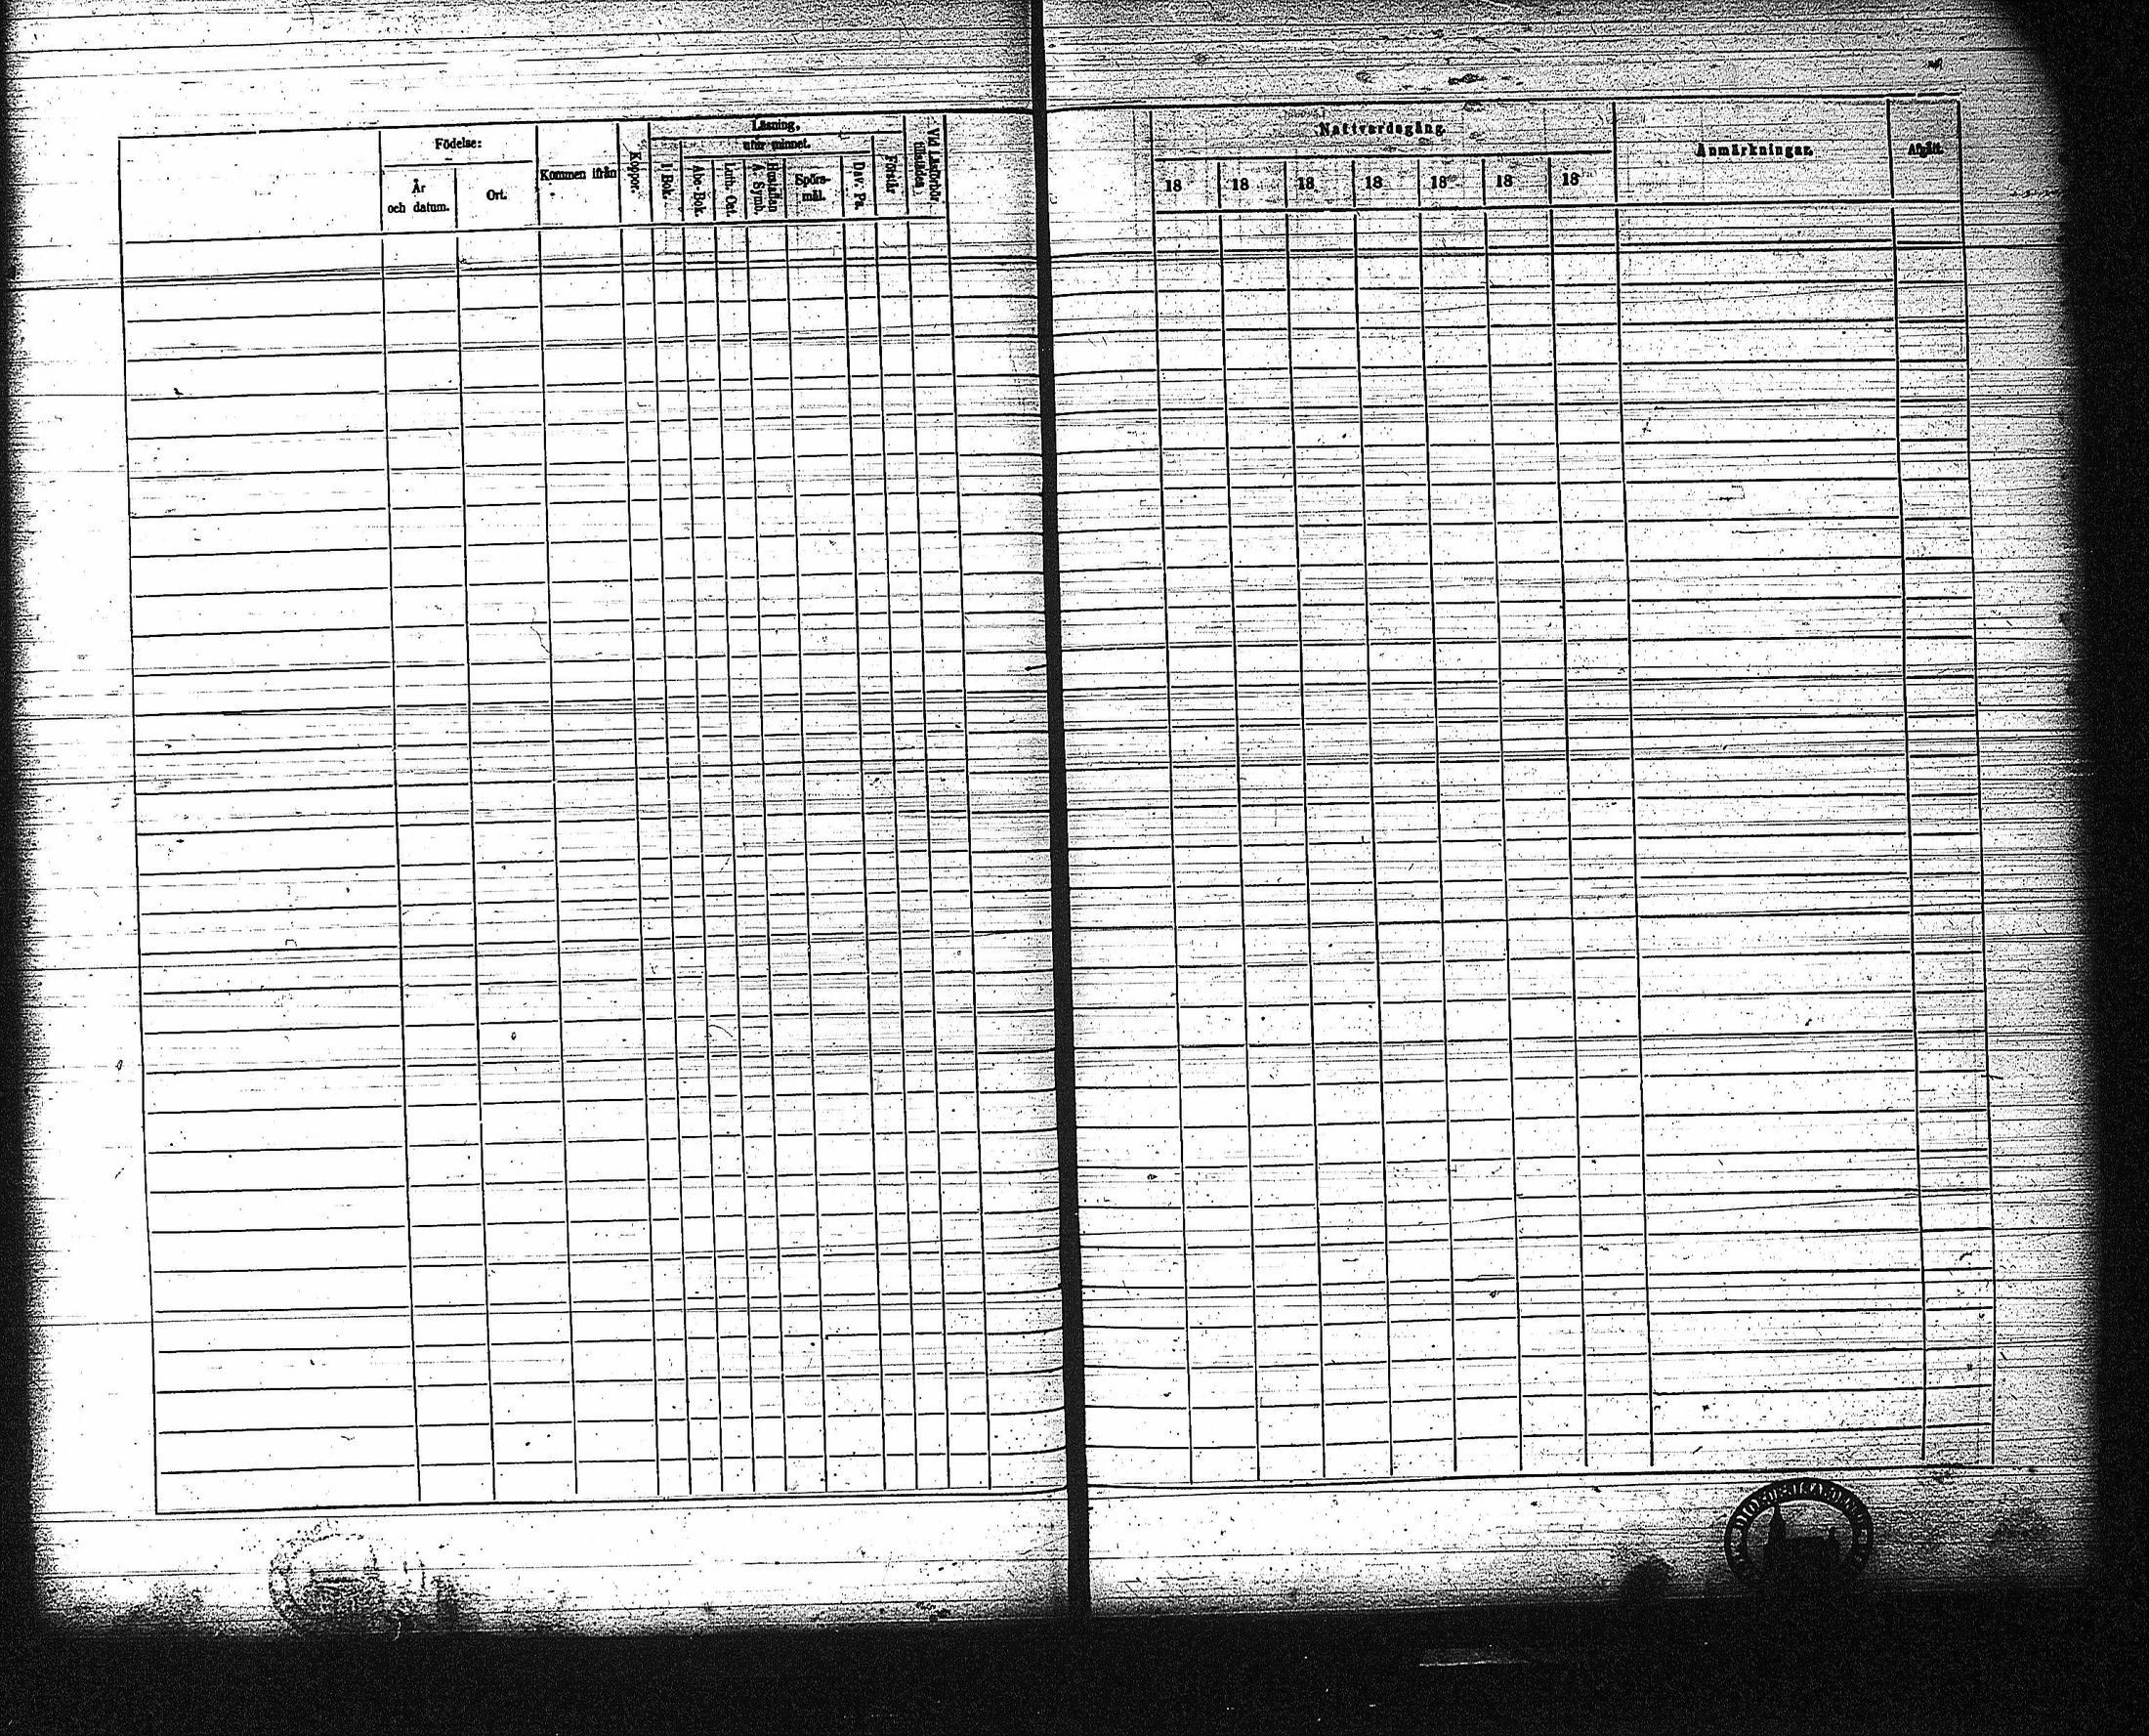 Födelse:
År
och datum.
Ort.
Kommen ifrån
Koppor.
Läsning,
utur minnet.
I Bok.
Abc-Bok.
Luth. Cat.
A. Symb.
Spörs-
mål.
Dav. Ps.
Förstår
Vid Läsförhör
Nattvardsgång.
18 18 18 18 18 18 18
Anmärkningar.
Afgått.